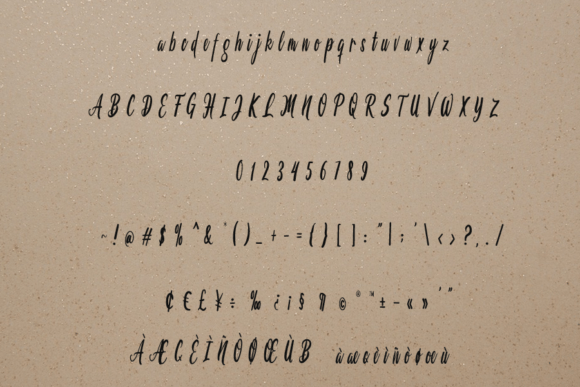 abcdefghijklmnopqrstuvwxyz
ABCDEFGHIJKLMNOPQRSTUVWXYZ
0123456789
~!@#$%^&*()_+-={}[]:"|;'\<>?,./
¢€£¥÷‰¿¡§¶©®™±–«»'"
ÀÆÇÈÌÑÒØŒÙß àæçèìñòøœù